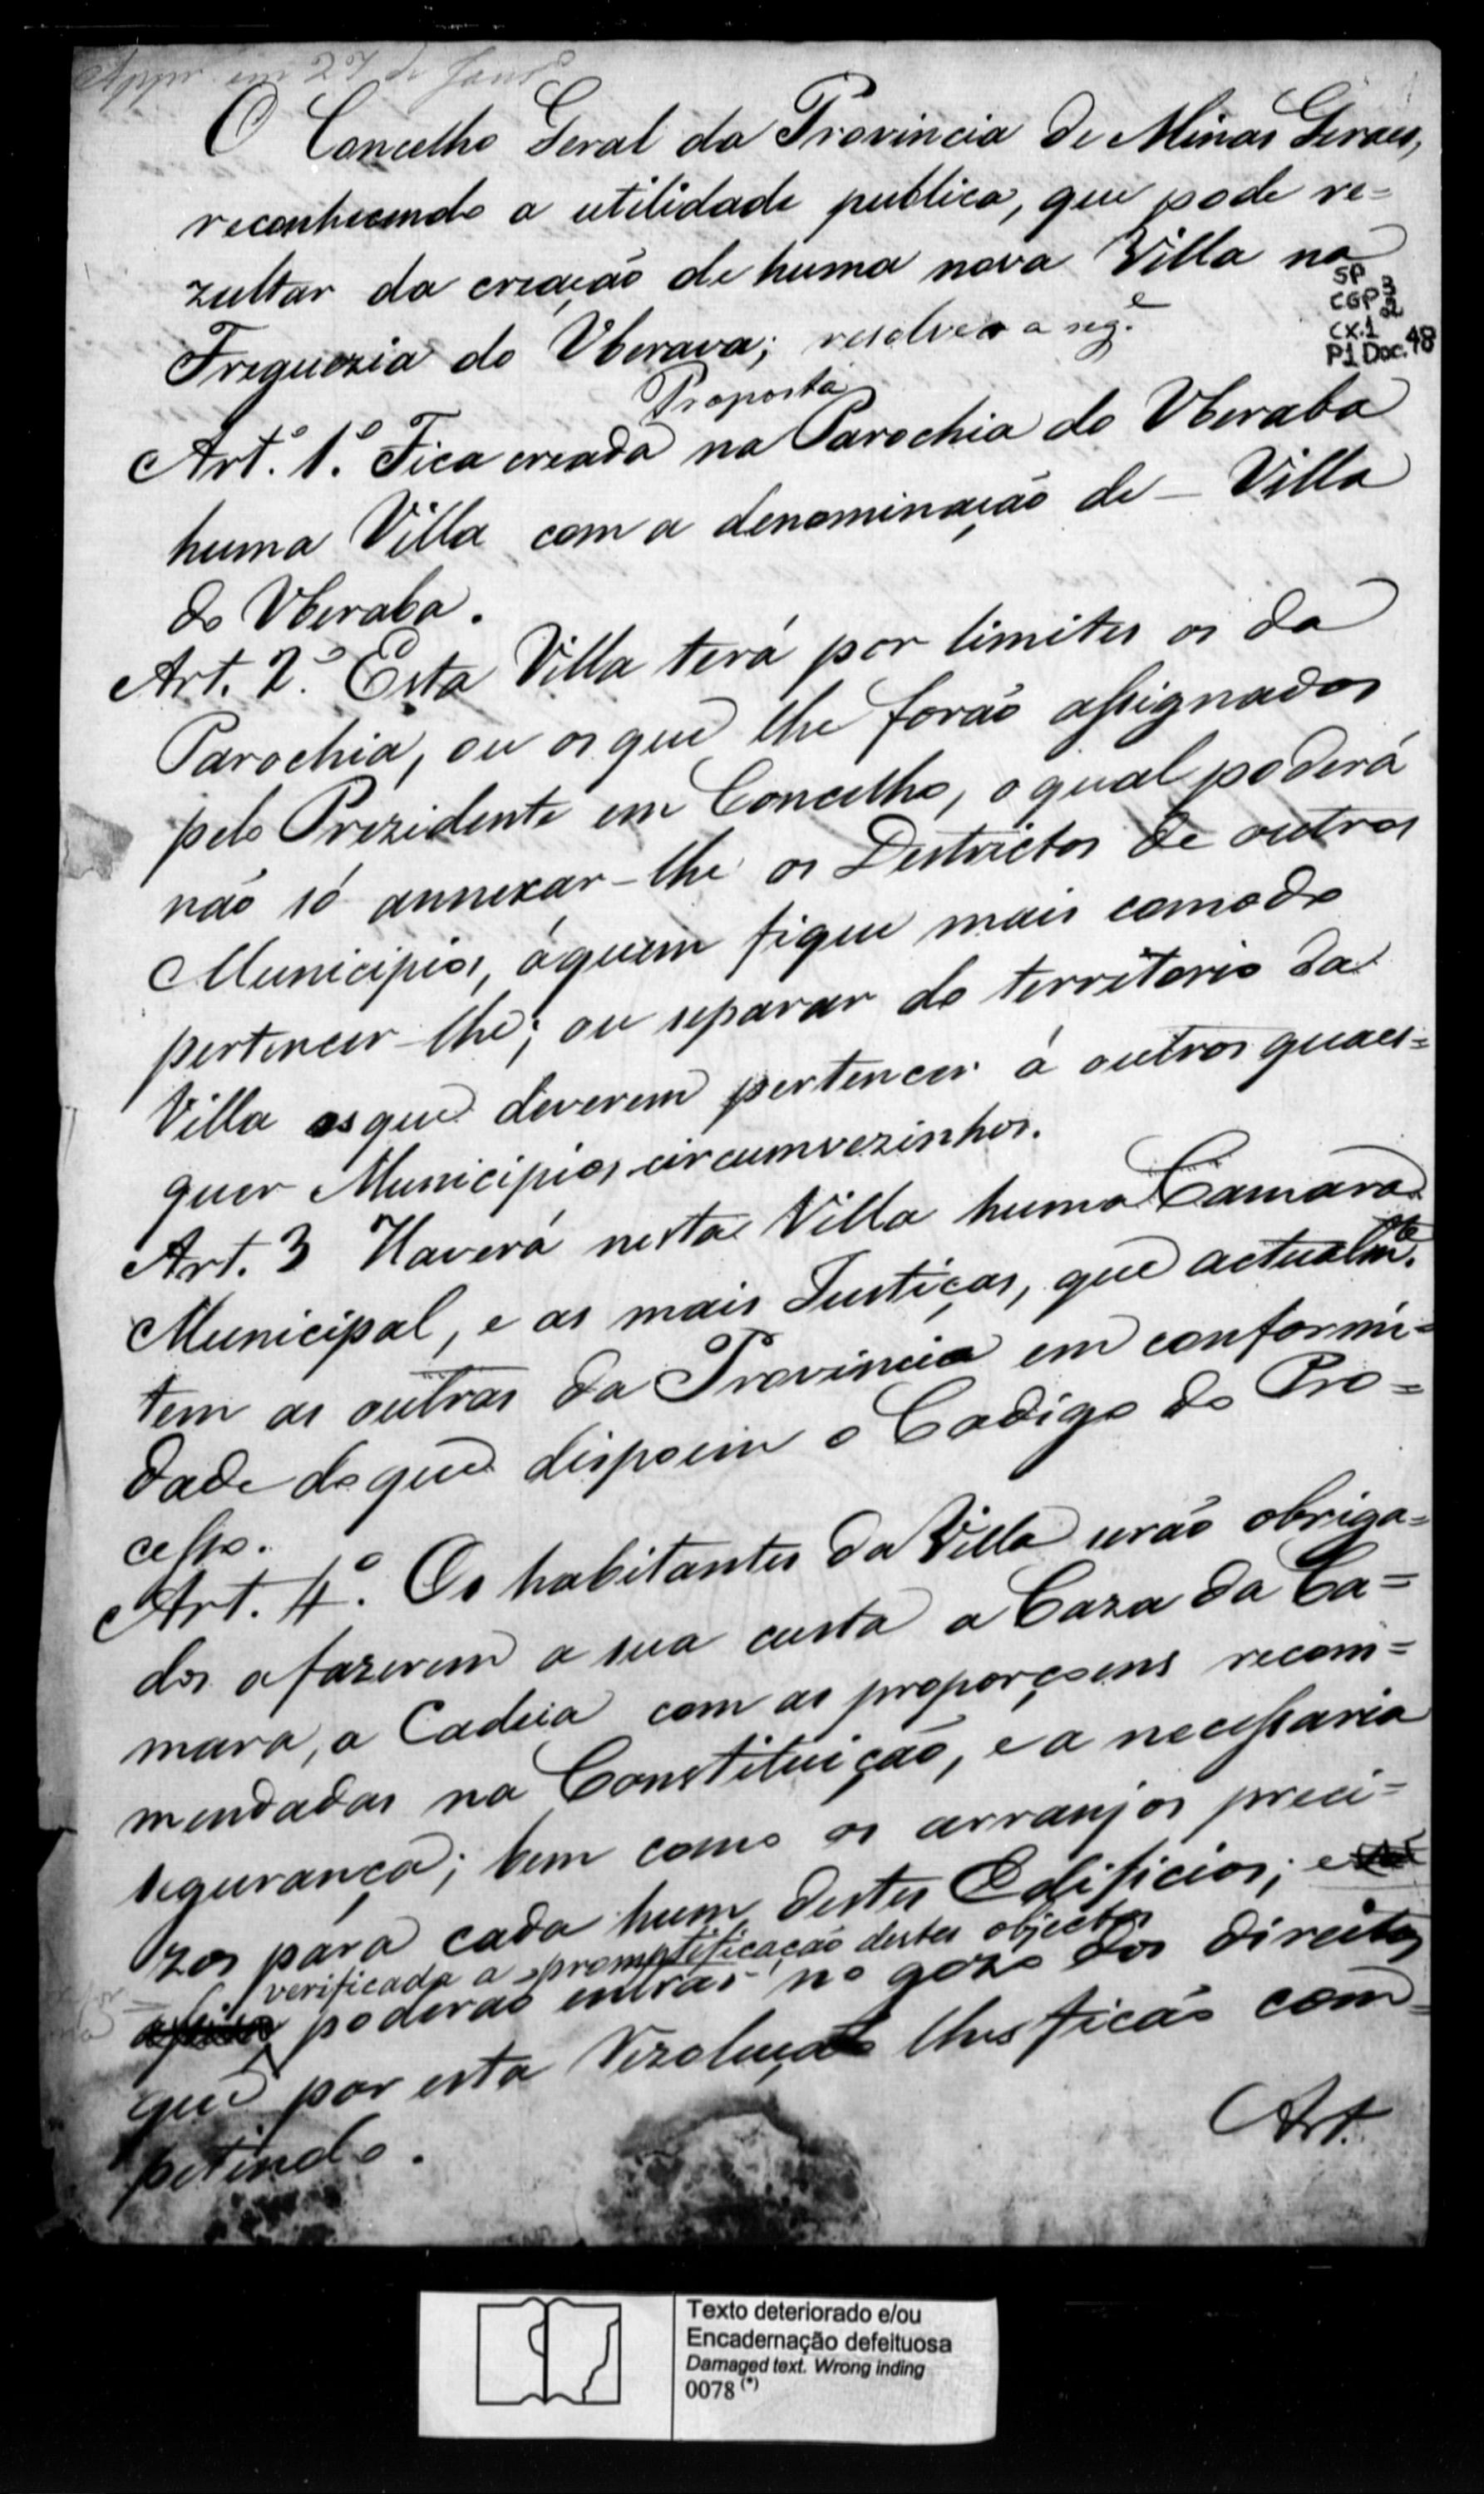 Appr. em 27 de Janr.o
O Concelho Geral da Provincia de Minas Geraes,
reconhecendo a utilidade publica, que pode re=
zultar da creação de huma nova Villa na
Freguezia do Uberava; resolveo a seg.e
Proposta
SP
CGP 3
2
CX.1
P1 Doc. 48
Art.o 1.o Fica creada na Parochia do Uberaba
huma Villa com a denominação de – Villa
do Uberaba.
Art. 2.o Esta Villa terá por limites os da
Parochia, ou os que lhe forão assignados
pelo Prezidente em Concelho, o qual poderá
não só annexar-lhe os Destrictos de outros
Municipios, áquem fique mais comodo
pertencer-lhe; ou separar do territorio da
Villa os que deverem pertencer á outros quaes=
quer Municipios circumvezinhos.
Art. 3 Haverá nesta Villa huma Camara
Municipal, e as mais Justiças, que actualm.te
tem as outras da Provincia em conformi=
dade do que dispoem o Codigo do Pro=
cesso.
Art. 4.o Os habitantes da Villa serão obriga=
dos a fazerem a sua custa a Caza da Ca=
mara, a Cadeia com as proporçoens recom=
mendadas na Constituição, e a necessaria
segurança; bem como os arranjos preci=
zos para cada hum destes Edificios; e
verificada a promptificação destes objectos
poderão entrar no gozo dos direitos
que por esta Rezolução lhes ficão com=
petindo.
Art.
Texto deteriorado e/ou
Encadernação defeituosa
Damaged text. Wrong inding
0078 (*)